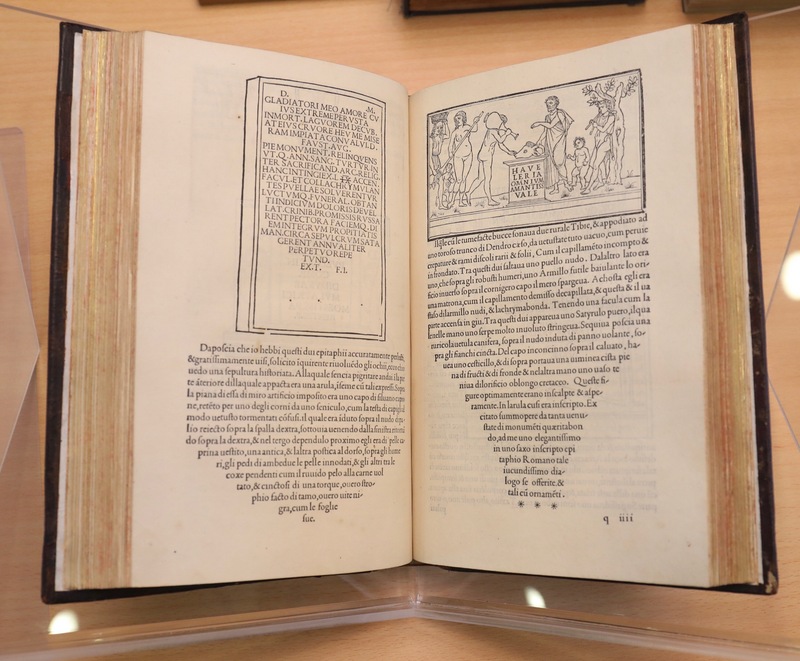 D. M.
GLADIATORI MEO AMORE CU
IVS EXTREME PERVSTA
INMORT. LAGVOREM DECVB.
AT EIVS CRVORE HEV ME MISE
RAM IMPIATA CONVALVI. D.
FAVST. AVG.
PIE MONVMENT. RELINQVENS
VT. Q. ANN. SANG. TVRTVR. IN
TER SACRIFICAND. ARC. RELIG.
HANC INTINGIEX. L. ACCEN.
FACVL. ET COLLACHRYMVLAN.
TES PVELLAE SOLVERENTVR
LVCTVMQ. FVNERAL. OBTAN
TI INDICIVM DOLORIS DEVEL
LAT. CRINIB. PROMISSIS RVSSA
RENT PECTORA FACIEMQ. DI
EM INTEGRVM PROPITIATIS
MAN. CIRCA SEPVLCRVM SATA
GERENT ANNVALITER
PERPETVO REPE
TVND.
EX. T. F. I.
Daposcia che io hebbi questi dui epitaphii accuratamente
& gratissimamente uisi, solicito iquirente riuoluedo gli ochii,
uedo una sepultura historiata. Alla quale sencia pigritare andai
te iteriore dillaquale appacta era una arula,
la piana di essa di miro artificio imposito era uno capo di siluano
ne, retêto per uno degli corni da uno seniculo, cum la testa di
modo uetusto tormentati cōfusi. il quale era iduto sopra di uno
lio reiecto sopra la dextra, sottoit a uenendo dalla sinistra
do sopra la dextra, & nel tergo dependulo proximo egli era di pelle
prina uestito, una antica, & laltra postica al dorso, sopra gli home
ri, gli pedi di ambedue le pelle innodati, & gli altri tra le
coxe pendenti cum il ruuido pelo alla carne uol
tato, & cinctosi di una torque, ouero stro-
phio facto di tamo, ouero uite ni-
gra, cum le foglie
sue.
HAVE
LERIA
OMNIVM
AMANTISS
VALE
Ilqle cū le tumefacte bucce sonaua due rurale Tibie, & appodiato ad
uno toroso trunco di Dendro cæso, da uetustate tuto uacuo, cum peruie
crepature & rami discoli rarii & folii, Cum il capillamēto incompto &
infrondato. Tra questi dui saltaua uno puello nudo. Dalaltro lato era
uno, che sopra gli robusti humeri, uno Armillo futile baiulante lo ori-
ficio inuerso sopra il cornigero capo il mero spargeua. A chosta egli era
una matrona, cum il capillamento demisso decapillata, & questa & il ua
stafo dilarmillo nudi, & lachrymabonda. Tenendo una facula cum la
parte accensa in giu. Tra questi dui appareua uno Satyrulo puero, ilqua
le nelle mano uno serpe molto inuoluto stringeua. Sequiua poscia una
ruricola uetula canifera, sopra il nudo induta di panno uolante, so-
pra gli fianchi cincta. Del capo inconcinno sopra il caluato, ha-
uea uno cesticillo, & di sopra portaua una uiminea cista pie
na di fructi & di fronde & nelaltra mano uno uaso te
niua dilorificio oblongo cretacco. Queste fi-
gure optimamente erano inscalpte & aspe-
ramente. In larula cusi era inscripto. Ex
citato summopere da tanta uenu-
state di monumēti quæritabon
do, ad me uno elegantissimo
in uno saxo inscripto epi
taphio Romano tale
iucundissimo dia-
logo se offerite. &
tali cū ornamēti.
* * *
q iiii